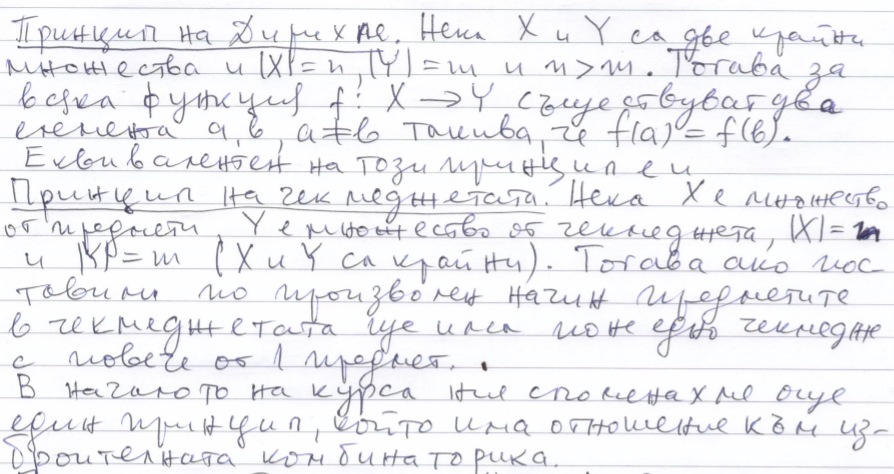 Принцип на Дирихле. Нека X и Y са две крайни
множества и |X|=n, |Y|=m и n>m. Тогава за
всяка функция f: X → Y съществуват два
елемента a, b, a≠b такива, че f(a) = f(b).
Еквивалентен на този принцип е и
Принцип на чекмеджетата. Нека X е множество
от предмети, Y е множество от чекмеджета, |X|=n
и |Y|=m (X и Y са крайни). Тогава ако пос-
тавим по произволен начин предметите
в чекмеджетата ще има поне едно чекмедже
с повече от 1 предмет.
В началото на курса ние споменахме още
един принцип, който има отношение към из-
броителната комбинаторика.